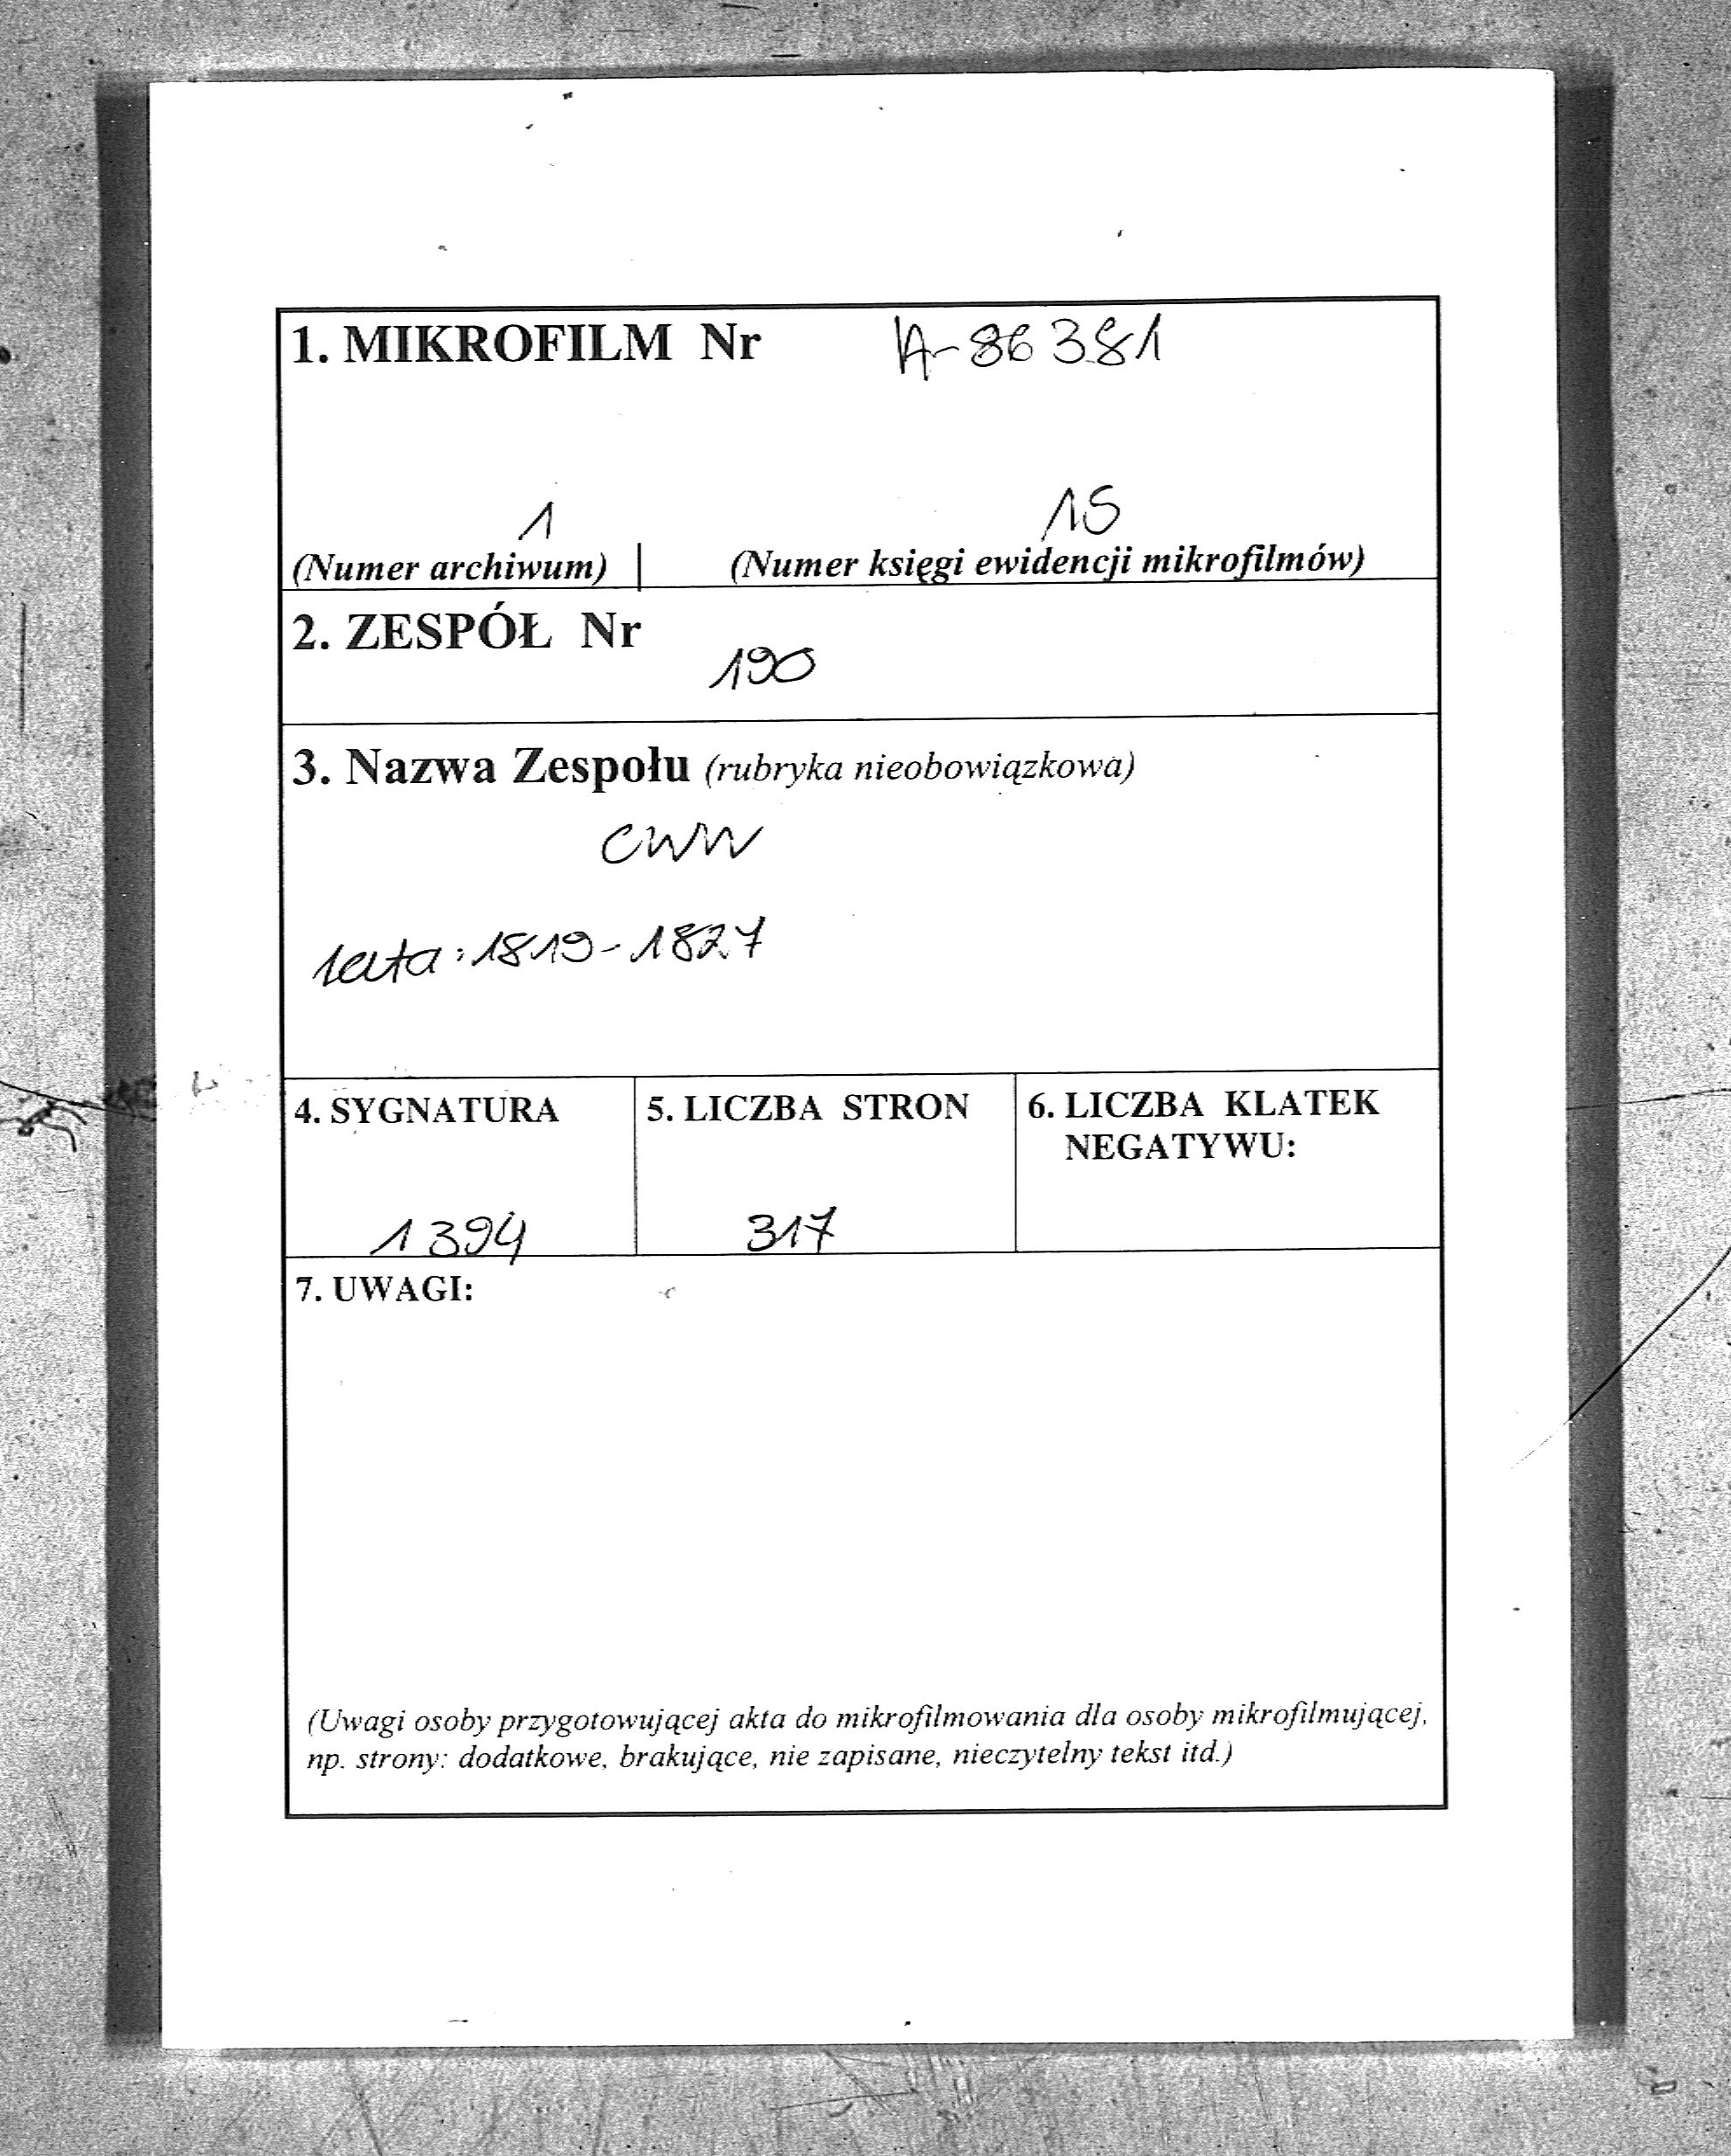 1. MIKROFILM Nr A-86381
1 15
(Numer archiwum) | (Numer księgi ewidencji mikrofilmów)
2. ZESPÓŁ Nr
190
3. Nazwa Zespołu (rubryka nieobowiązkowa)
CWW
lata: 1819-1827
4. SYGNATURA 5. LICZBA STRON 6. LICZBA KLATEK
NEGATYWU:
1394 317
7. UWAGI:
(Uwagi osoby przygotowującej akta do mikrofilmowania dla osoby mikrofilmującej,
np. strony: dodatkowe, brakujące, nie zapisane, nieczytelny tekst itd.)